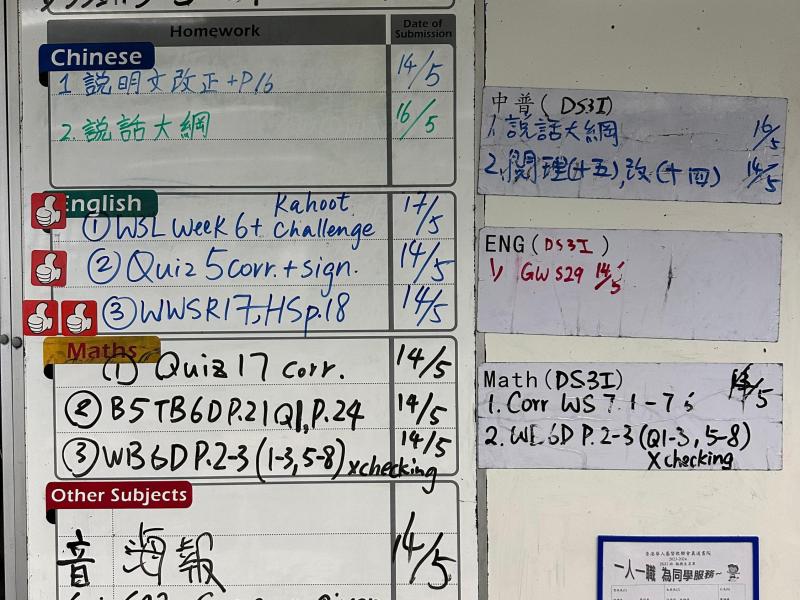 Homework
Date of Submission
Chinese
1. 說明文改正+P16 14/5
2. 說話大綱 16/5
English
① WSL Week 6 + Kahoot challenge 17/5
② Quiz 5 corr. + sign. 14/5
③ WWSR17, HSp.18 14/5
Maths
① Quiz 17 corr. 14/5
② B5 TB6D P.21 Q1, P.24 14/5
③ WB 6D P.2-3 (1-3, 5-8) 14/5
xchecking
Other Subjects
音 報 14/5
中普 (DS3I)
1. 說話大綱 16/5
2. 閱理(十五), 改(十四) 14/5
ENG (DS3I)
1) GW S29 14/5
Math (DS3I) 14/5
1. Corr WS 7.1-7.
2. WB 6D P.2-3 (Q1-3, 5-8)
X checking
2023-2024
一人一職 為同學服務~